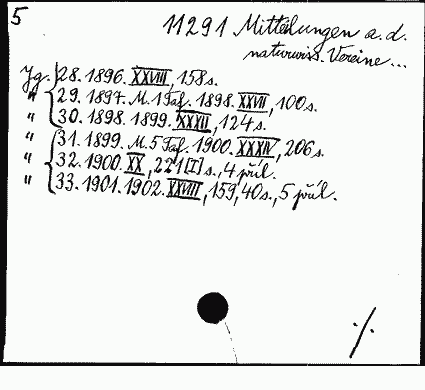 5
11291 Mitteilungen a. d.
naturwiss. Vereine...
Jg. 28. 1896. XXVIII, 158 s.
" 29. 1897. M. 1 Taf. 1898. XXVII, 100 s.
" 30. 1898. 1899. XXXII, 124 s.
" 31. 1899. M. 5 Taf. 1900. XXXIV, 206 s.
" 32. 1900. XX, 221 [I] s., 4 příl.
" 33. 1901. 1902. XXVIII, 159, 40 s., 5 příl.
./.